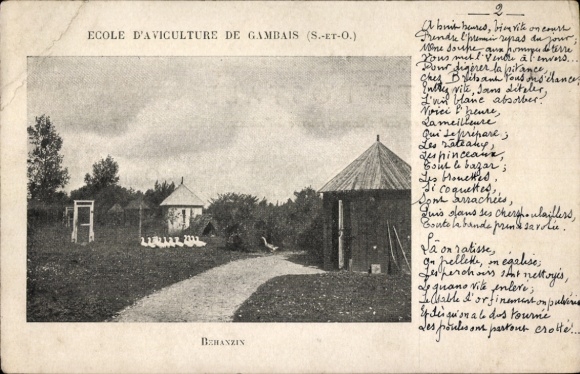 ECOLE D'AVICULTURE DE GAMBAIS (S.-ET-O.)
BEHANZIN
2
A huit heures, bien vite on court
Prendre l'premier repas du jour;
Une soupe aux pommes de terre
Vous met l'ventre à l'envers...
Pour digérer la pitance,
Chez Brisant tous on s'élance;
Entrez vite, sans délai,
L'vin blanc absorber.
Voici l'heure,
La meilleure
Qui se prépare;
Les râteaux,
Les pinceaux,
Tout le bazar;
Les brouettes,
Si coquettes,
Sont arrachées,
Puis dans ses chers poulaillers,
Toute la bande prend sa volée.
Là on ratisse,
On pellette, on égalise;
Les perchoirs sont nettoyés,
Le guano vite enlevé;
Le sable d'or finement on pulvérise
Et dès qu'on a le dos tourné
Les poules ont partout crotté!...